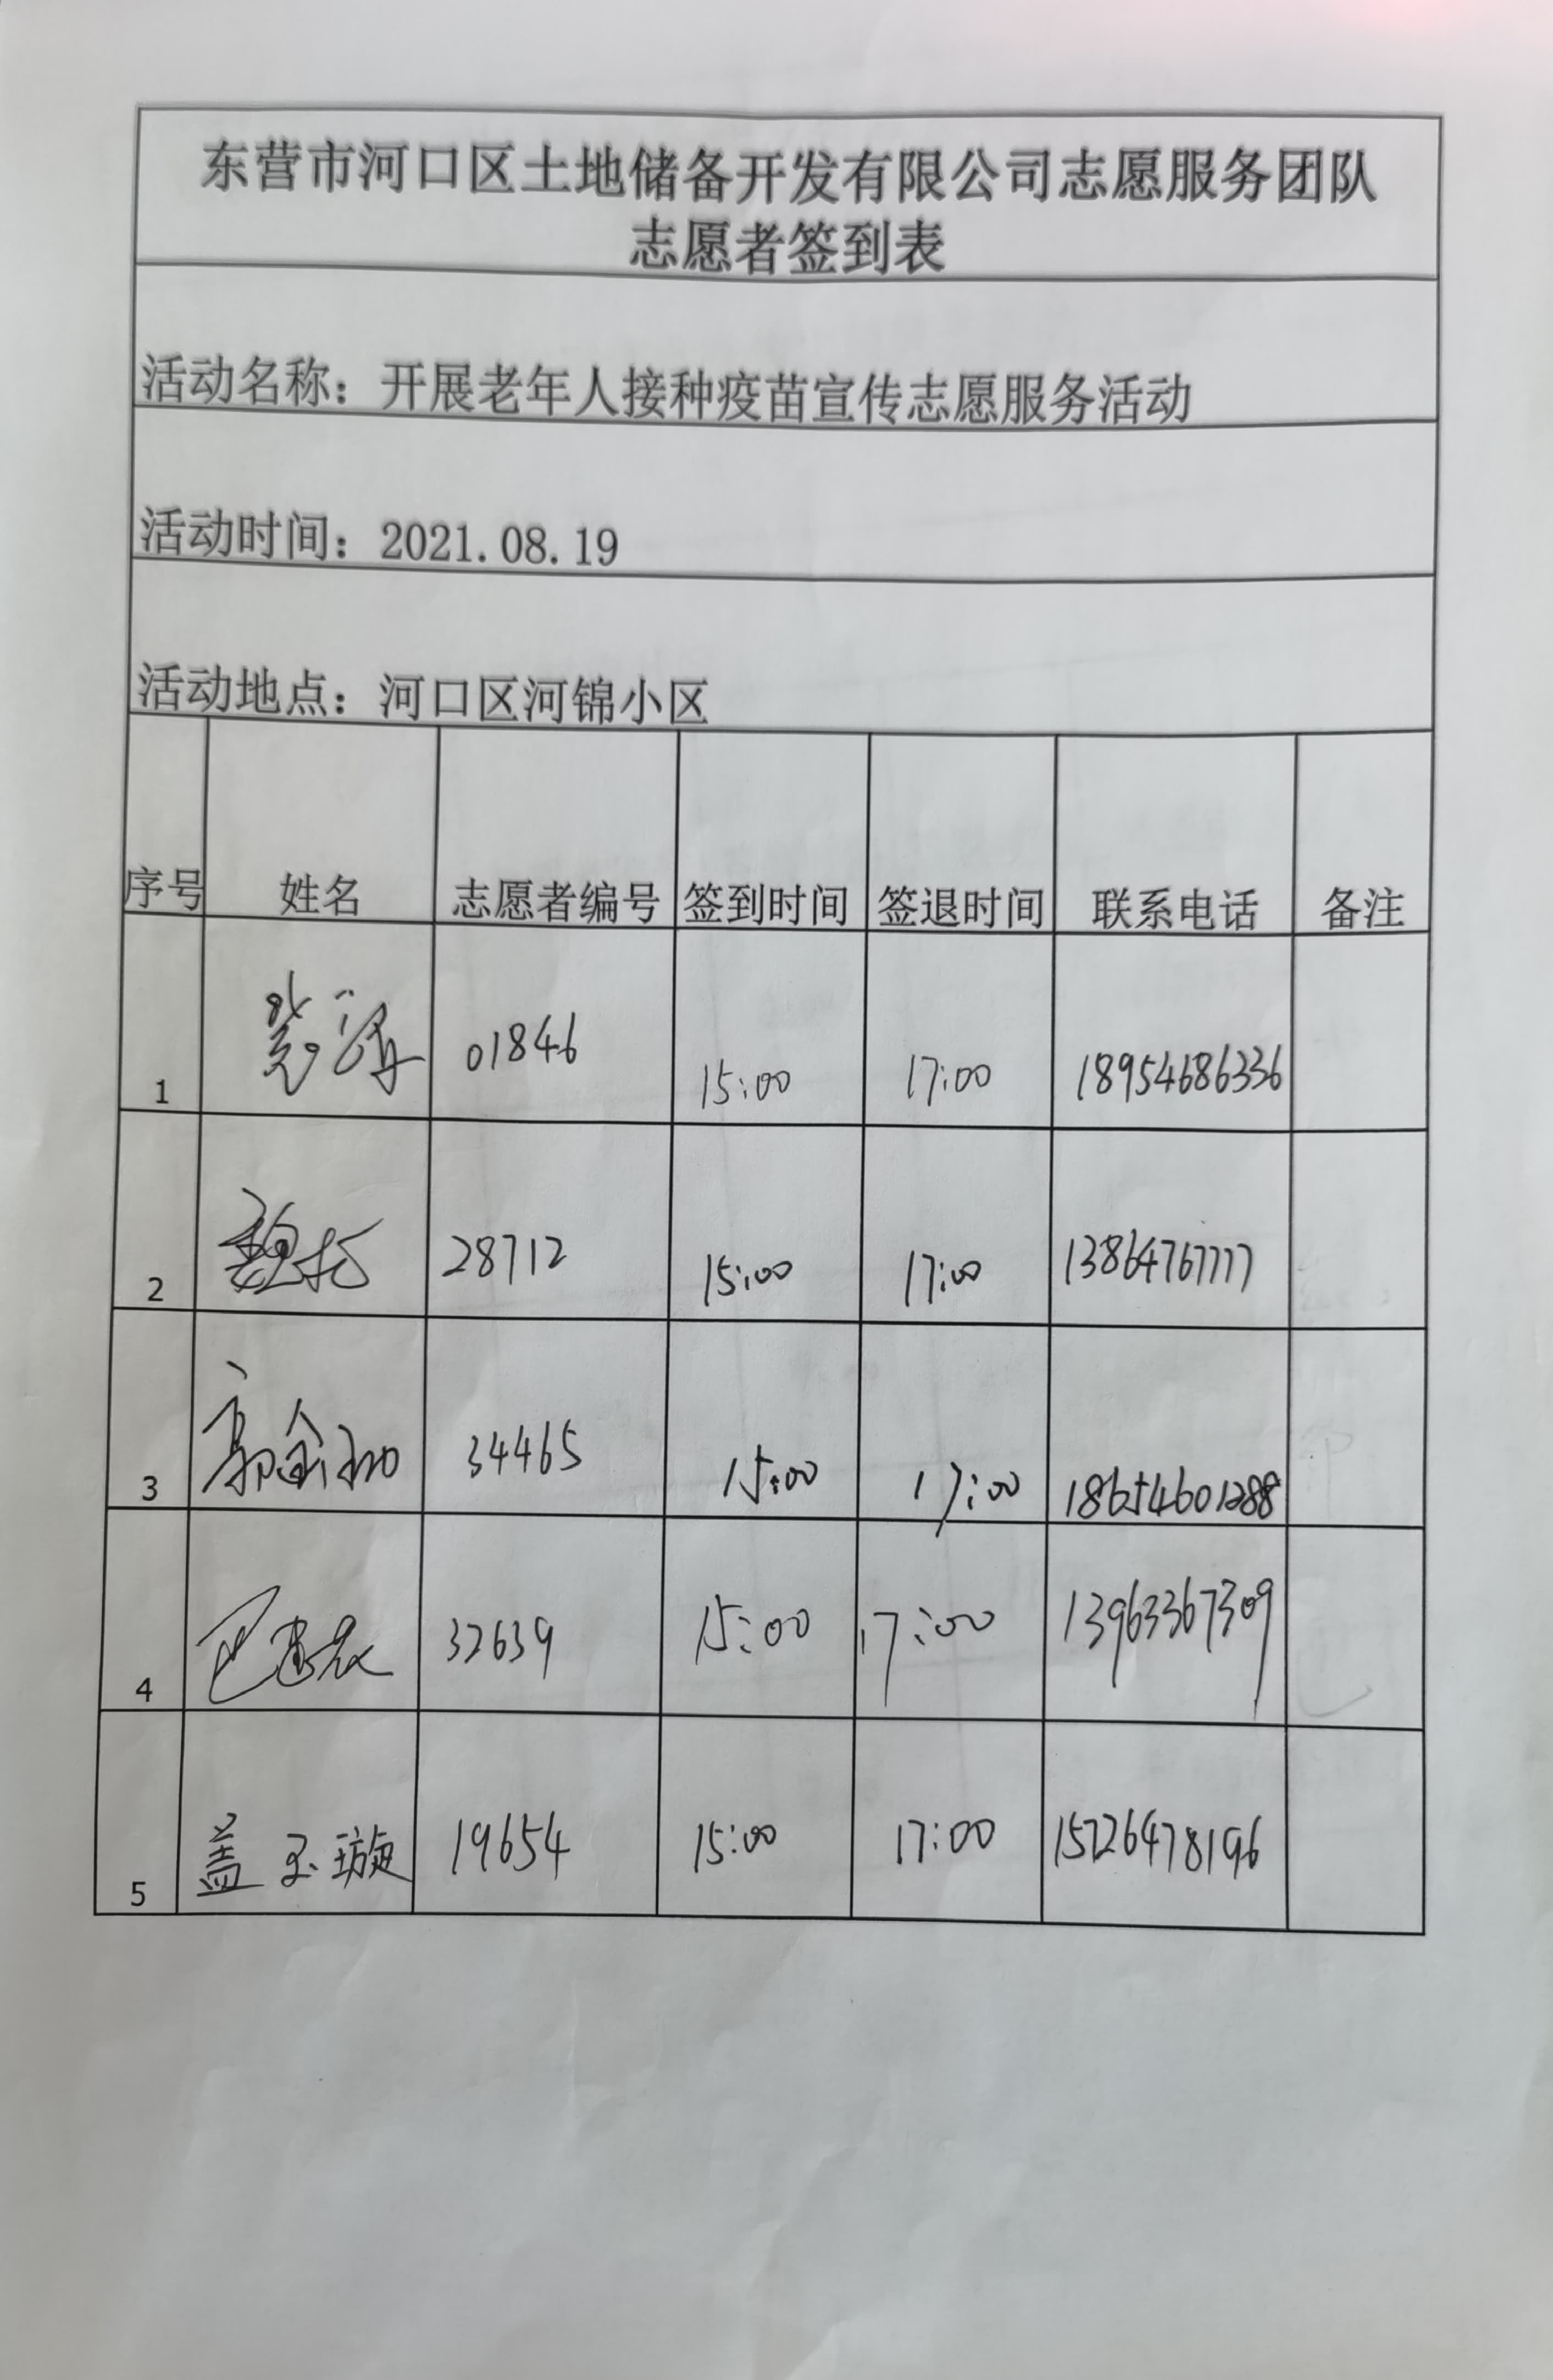 东营市河口区土地储备开发有限公司志愿服务团队
志愿者签到表
活动名称：开展老年人接种疫苗宣传志愿服务活动
活动时间：2021.08.19
活动地点：河口区河锦小区
序号 姓名 志愿者编号 签到时间 签退时间 联系电话 备注
1 01846 15:00 17:00 18954686336
2 28712 15:00 17:00 13864767777
3 34465 15:00 17:00 18654601288
4 32639 15:00 17:00 13963367309
5 盖玉璇 19654 15:00 17:00 15726478196